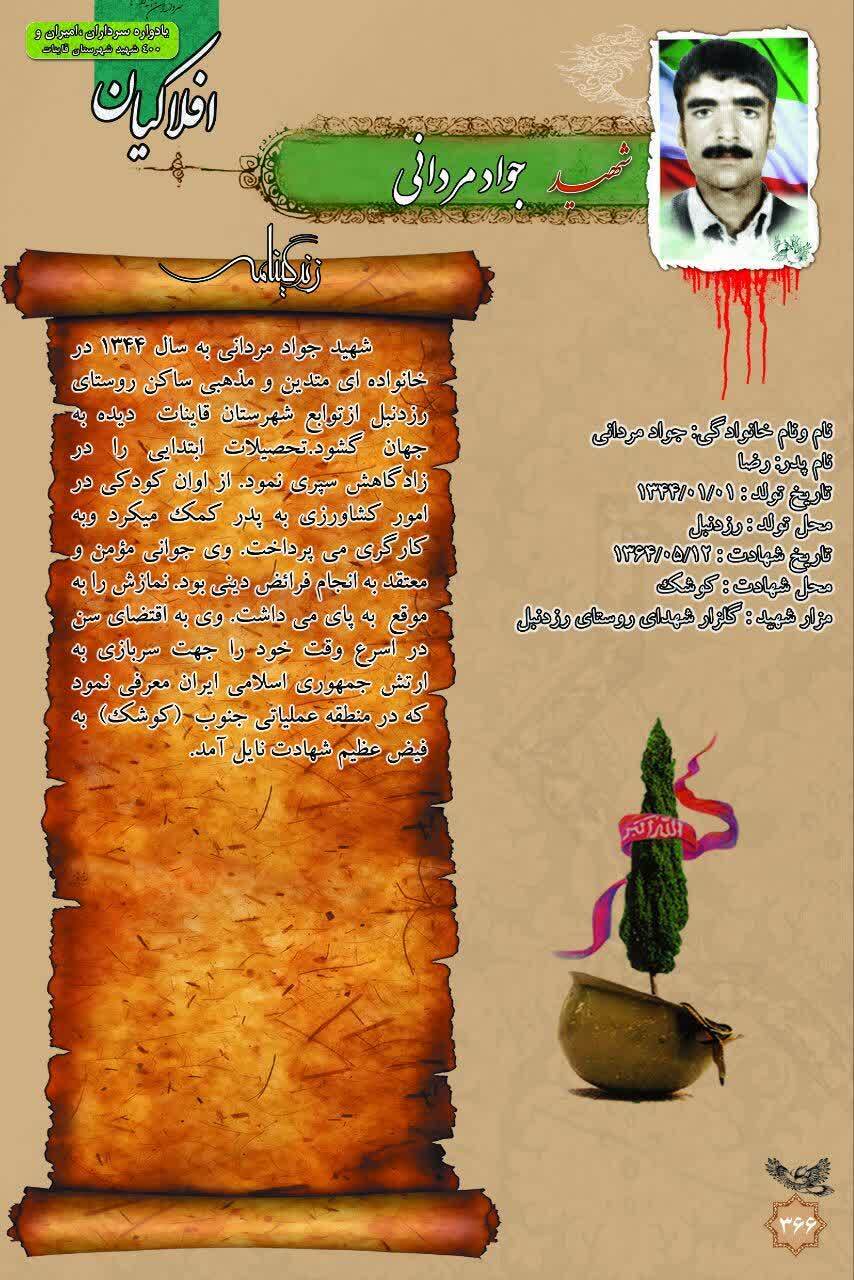 یادواره سرداران ،امیران و
۴۰۰ شهید شهرستان قاینات
افلاکیان
شهید جواد مردانی
زندگینامه
شهید جواد مردانی به سال ۱۳۴۴ در
خانواده ای متدین و مذهبی ساکن روستای
رزدنبل ازتوابع شهرستان قاینات دیده به
جهان گشود.تحصیلات ابتدایی را در
زادگاهش سپری نمود. از اوان کودکی در
امور کشاورزی به پدر کمک میکرد وبه
کارگری می پرداخت. وی جوانی مؤمن و
معتقد به انجام فرائض دینی بود. نمازش را به
موقع به پای می داشت. وی به اقتضای سن
در اسرع وقت خود را جهت سربازی به
ارتش جمهوری اسلامی ایران معرفی نمود
که در منطقه عملیاتی جنوب (کوشک) به
فیض عظیم شهادت نایل آمد.
نام ونام خانوادگی: جواد مردانی
نام پدر: رضا
تاریخ تولد : ۱۳۴۴/۰۱/۰۱
محل تولد : رزدنبل
تاریخ شهادت : ۱۳۶۴/۰۵/۱۲
محل شهادت : کوشک
مزار شهید : گلزار شهدای روستای رزدنبل
الله اکبر
۳۶۶